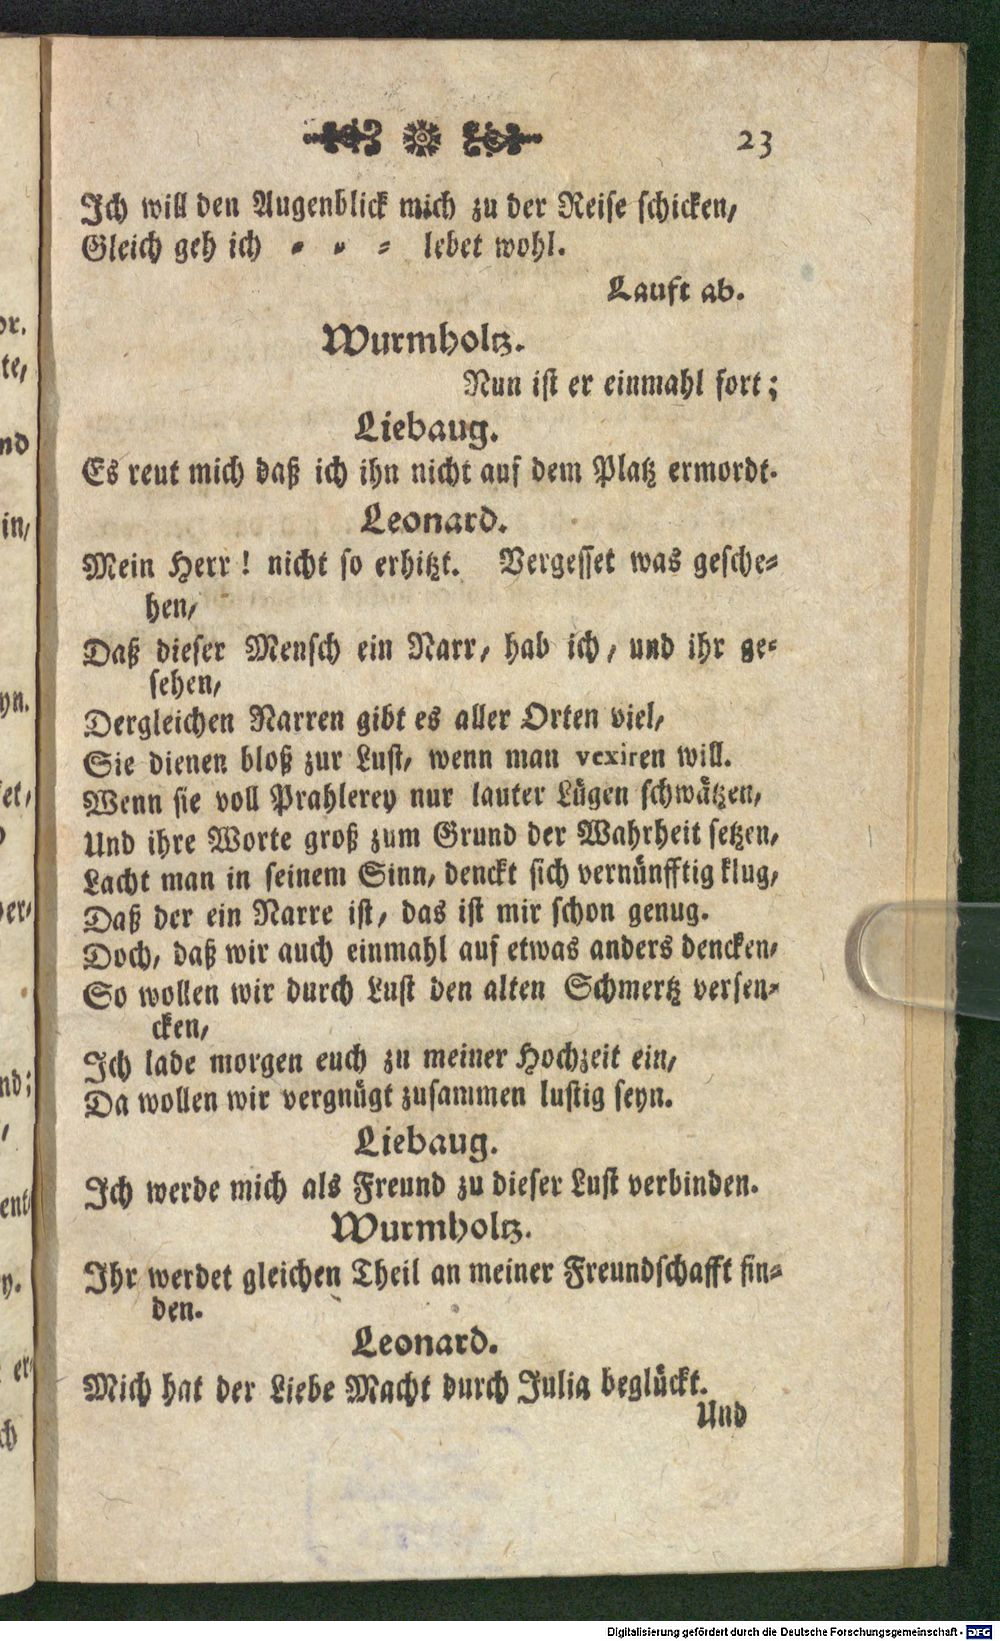 23
Ich will den Augenblick mich zu der Reise schicken,
Gleich geh ich = = = lebet wohl.
Lauft ab.
Wurmholtz.
Nun ist er einmahl fort;
Liebaug.
Es reut mich daß ich ihn nicht auf dem Platz ermordt.
Leonard.
Mein Herr! nicht so erhitzt. Vergesset was gesche=
hen,
Daß dieser Mensch ein Narr, hab ich, und ihr ge=
sehen,
Dergleichen Narren gibt es aller Orten viel,
Sie dienen bloß zur Lust, wenn man vexiren will.
Wenn sie voll Prahlerey nur lauter Lügen schwätzen,
Und ihre Worte groß zum Grund der Wahrheit setzen,
Lacht man in seinem Sinn, denckt sich vernünfftig klug,
Daß der ein Narre ist, das ist mir schon genug.
Doch, daß wir auch einmahl auf etwas anders dencken,
So wollen wir durch Lust den alten Schmertz versen=
cken,
Ich lade morgen euch zu meiner Hochzeit ein,
Da wollen wir vergnügt zusammen lustig seyn.
Liebaug.
Ich werde mich als Freund zu dieser Lust verbinden.
Wurmholtz.
Ihr werdet gleichen Theil an meiner Freundschafft fin=
den.
Leonard.
Mich hat der Liebe Macht durch Julia beglückt.
Und
Digitalisierung gefördert durch die Deutsche Forschungsgemeinschaft - DFG